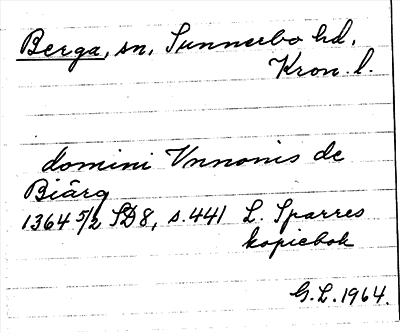 Berga, sn, Sunnerbo hd,
Kron. l.
domini Vnnonis de
Biärg
1364 5/2 SD 8, s. 441 L. Sparres
kopiebok
G.L. 1964.